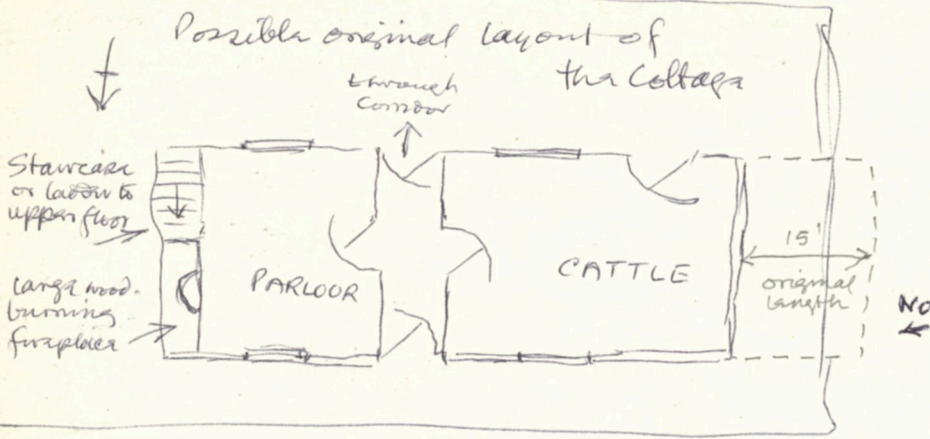 Possible original layout of
the Cottage
through
Corridor
Staircase
or ladder to
upper floor
Large wood-
burning
fireplace
PARLOUR
CATTLE
15'
original
length
No